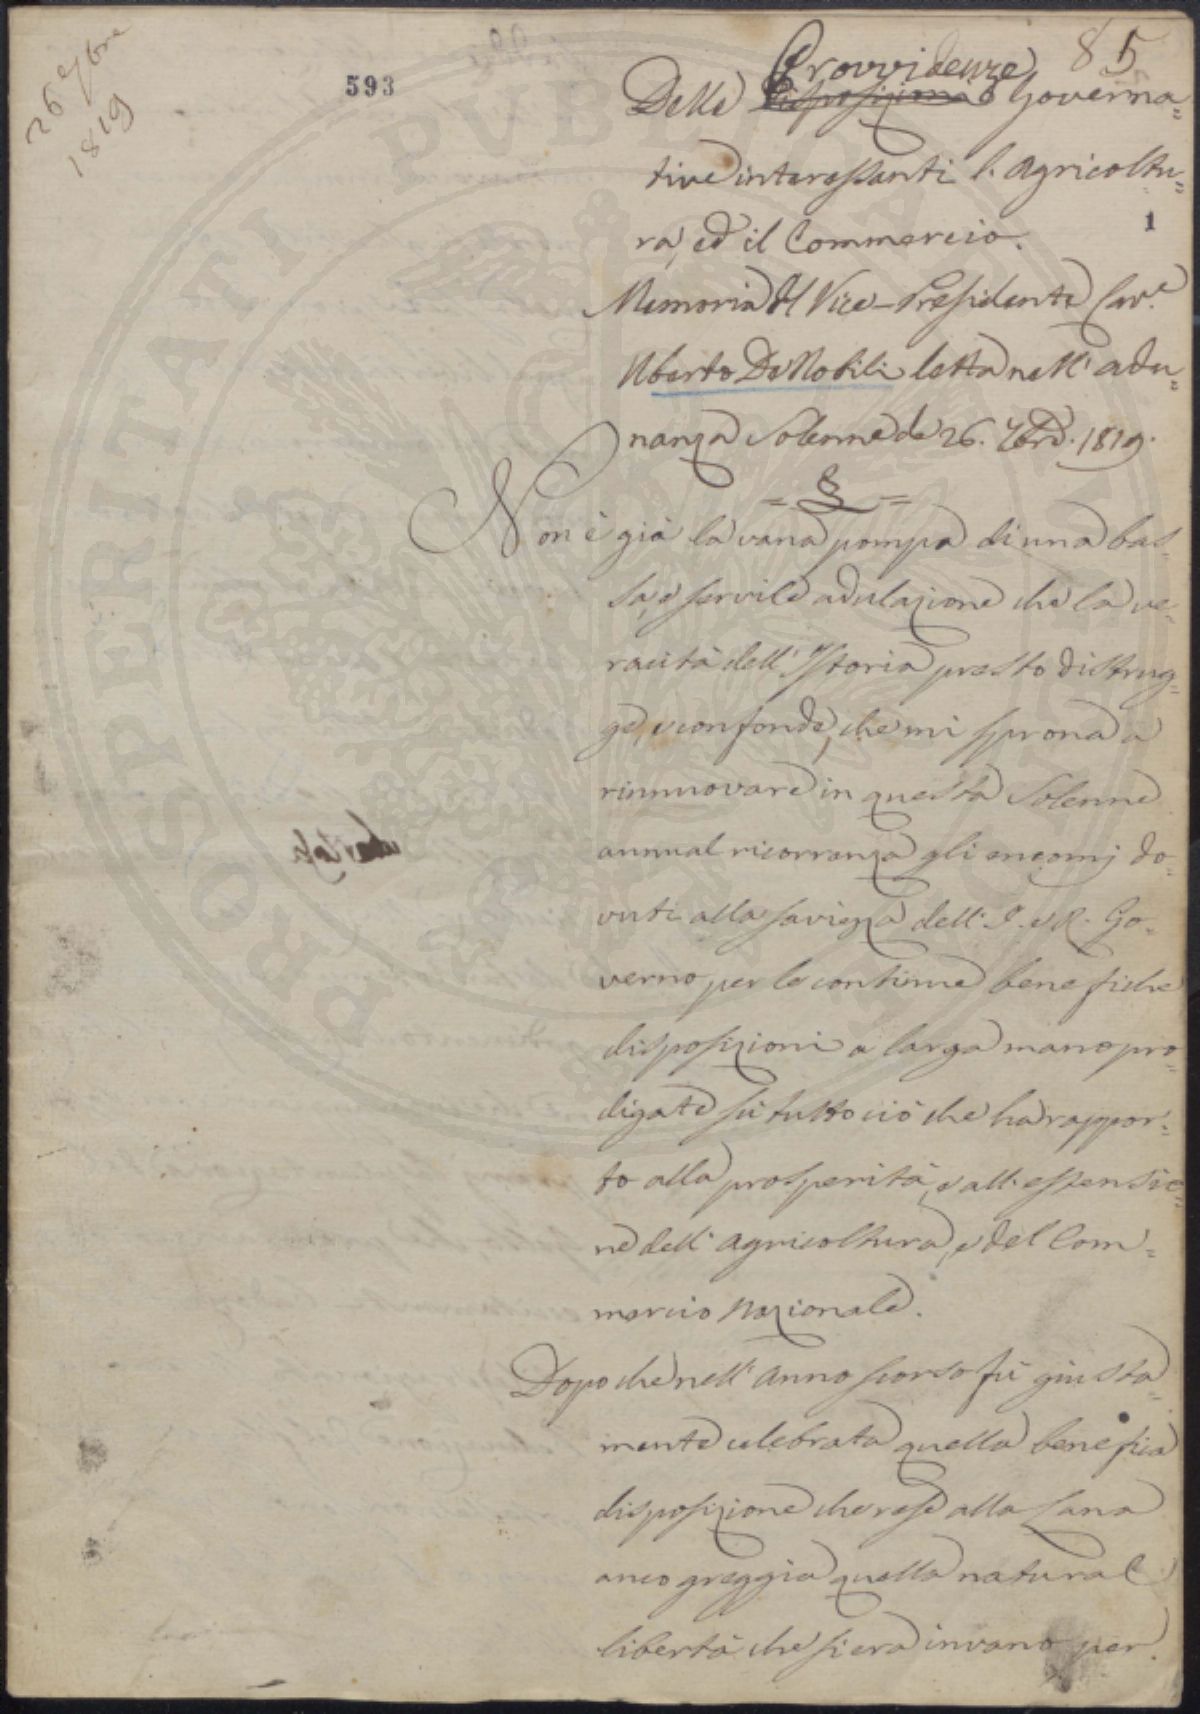 26 7bre
1819
593
85
Provvidenze
Delle Disposizioni Governa=
tive interessanti l'Agricoltu=
ra, ed il Commercio.
1
Memoria del Vice-Presidente Cav.e
Uberto De Nobili letta nell'adu=
nanza Solenne de 26. 7bre. 1819.
= § =
Non è già la vana pompa di una bas=
sa, e servile adulazione che la ve=
racità dell'Istoria presto distrug=
ge, e confonde, che mi sprona a
rinnuovare in questa Solenne
annual ricorrenza gli encomj do=
vuti alla saviezza dell'I. e R. Go=
verno per le continue benefiche
disposizioni a larga mano pro=
digate sù tutto ciò che ha rappor=
to alla prosperità, e all'estensio=
ne dell'Agricoltura, e del Com=
mercio Nazionale.
Dopo che nell'Anno scorso fù giusta=
mente celebrata quella benefica
disposizione che rese alla Lana
anco greggia quella natural
libertà che si era invano per
PROSPERITATI PUBLICAE